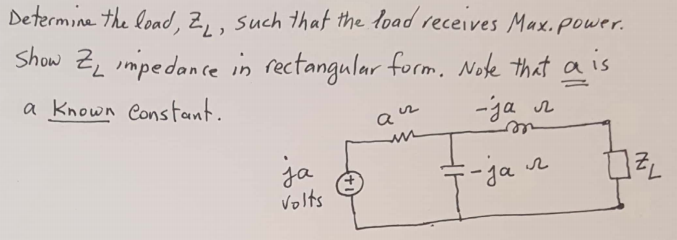 Determine the load, Z_L, such that the load receives Max. power.
Show Z_L impedance in rectangular form. Note that a is
a Known Constant.
a Ω
-ja Ω
ja
volts
-ja Ω
Z_L